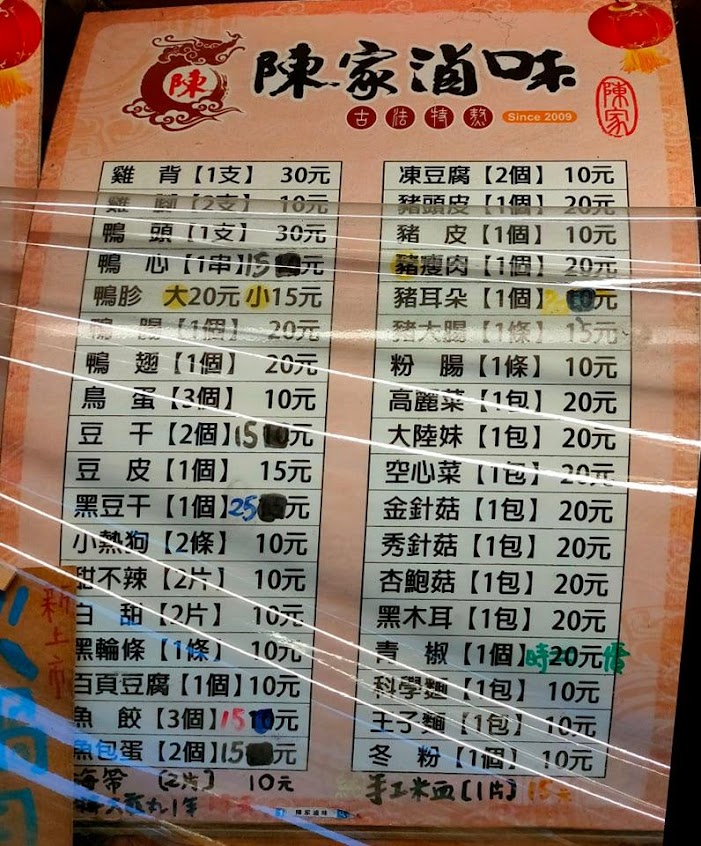 陳
陳家滷味
古法特熬 Since 2009
陳家
雞背【1支】 30元
雞腳【2支】 10元
鴨頭【1支】 30元
鴨心【1串】15元
鴨胗 大20元 小15元
鴨腸【1個】 20元
鴨翅【1個】 20元
鳥蛋【3個】 10元
豆干【2個】15元
豆皮【1個】 15元
黑豆干【1個】25元
小熱狗【2條】 10元
甜不辣【2片】 10元
白甜【2片】 10元
黑輪條【1條】 10元
百頁豆腐【1個】10元
魚餃【3個】15元
魚包蛋【2個】15元
海帶 〔2片〕 10元
凍豆腐【2個】 10元
豬頭皮【1個】 20元
豬皮【1個】 10元
豬瘦肉【1個】 20元
豬耳朵【1個】 元
豬大腸【1條】 15元
粉腸【1條】 10元
高麗菜【1包】 20元
大陸妹【1包】 20元
空心菜【1包】 20元
金針菇【1包】 20元
秀針菇【1包】 20元
杏鮑菇【1包】 20元
黑木耳【1包】 20元
青椒【1個】時20元價
科學麵【1包】 10元
王子麵【1包】 10元
冬粉【1個】 10元
手工米血〔1片〕 15元
陳家滷味
新上市